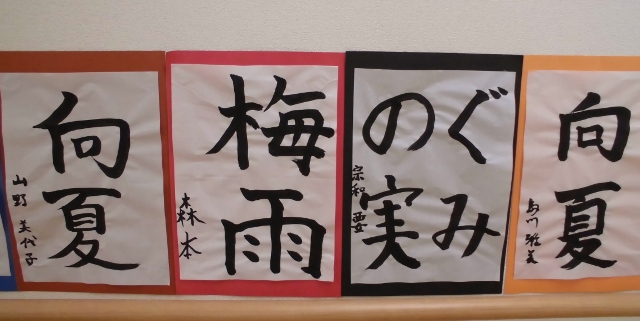 向夏
山野 美代子
梅雨
森本
ぐみ
の実
宗和 要
向夏
雅美